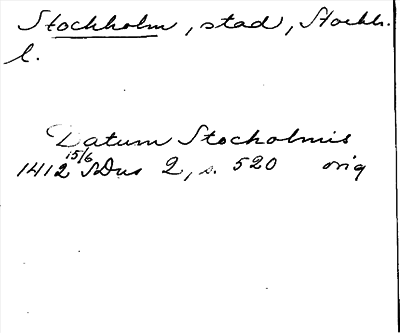 Stockholm, stad, Stockh.
l.
Datum Stocholmis
1412 15/6 SDns 2, s. 520 orig